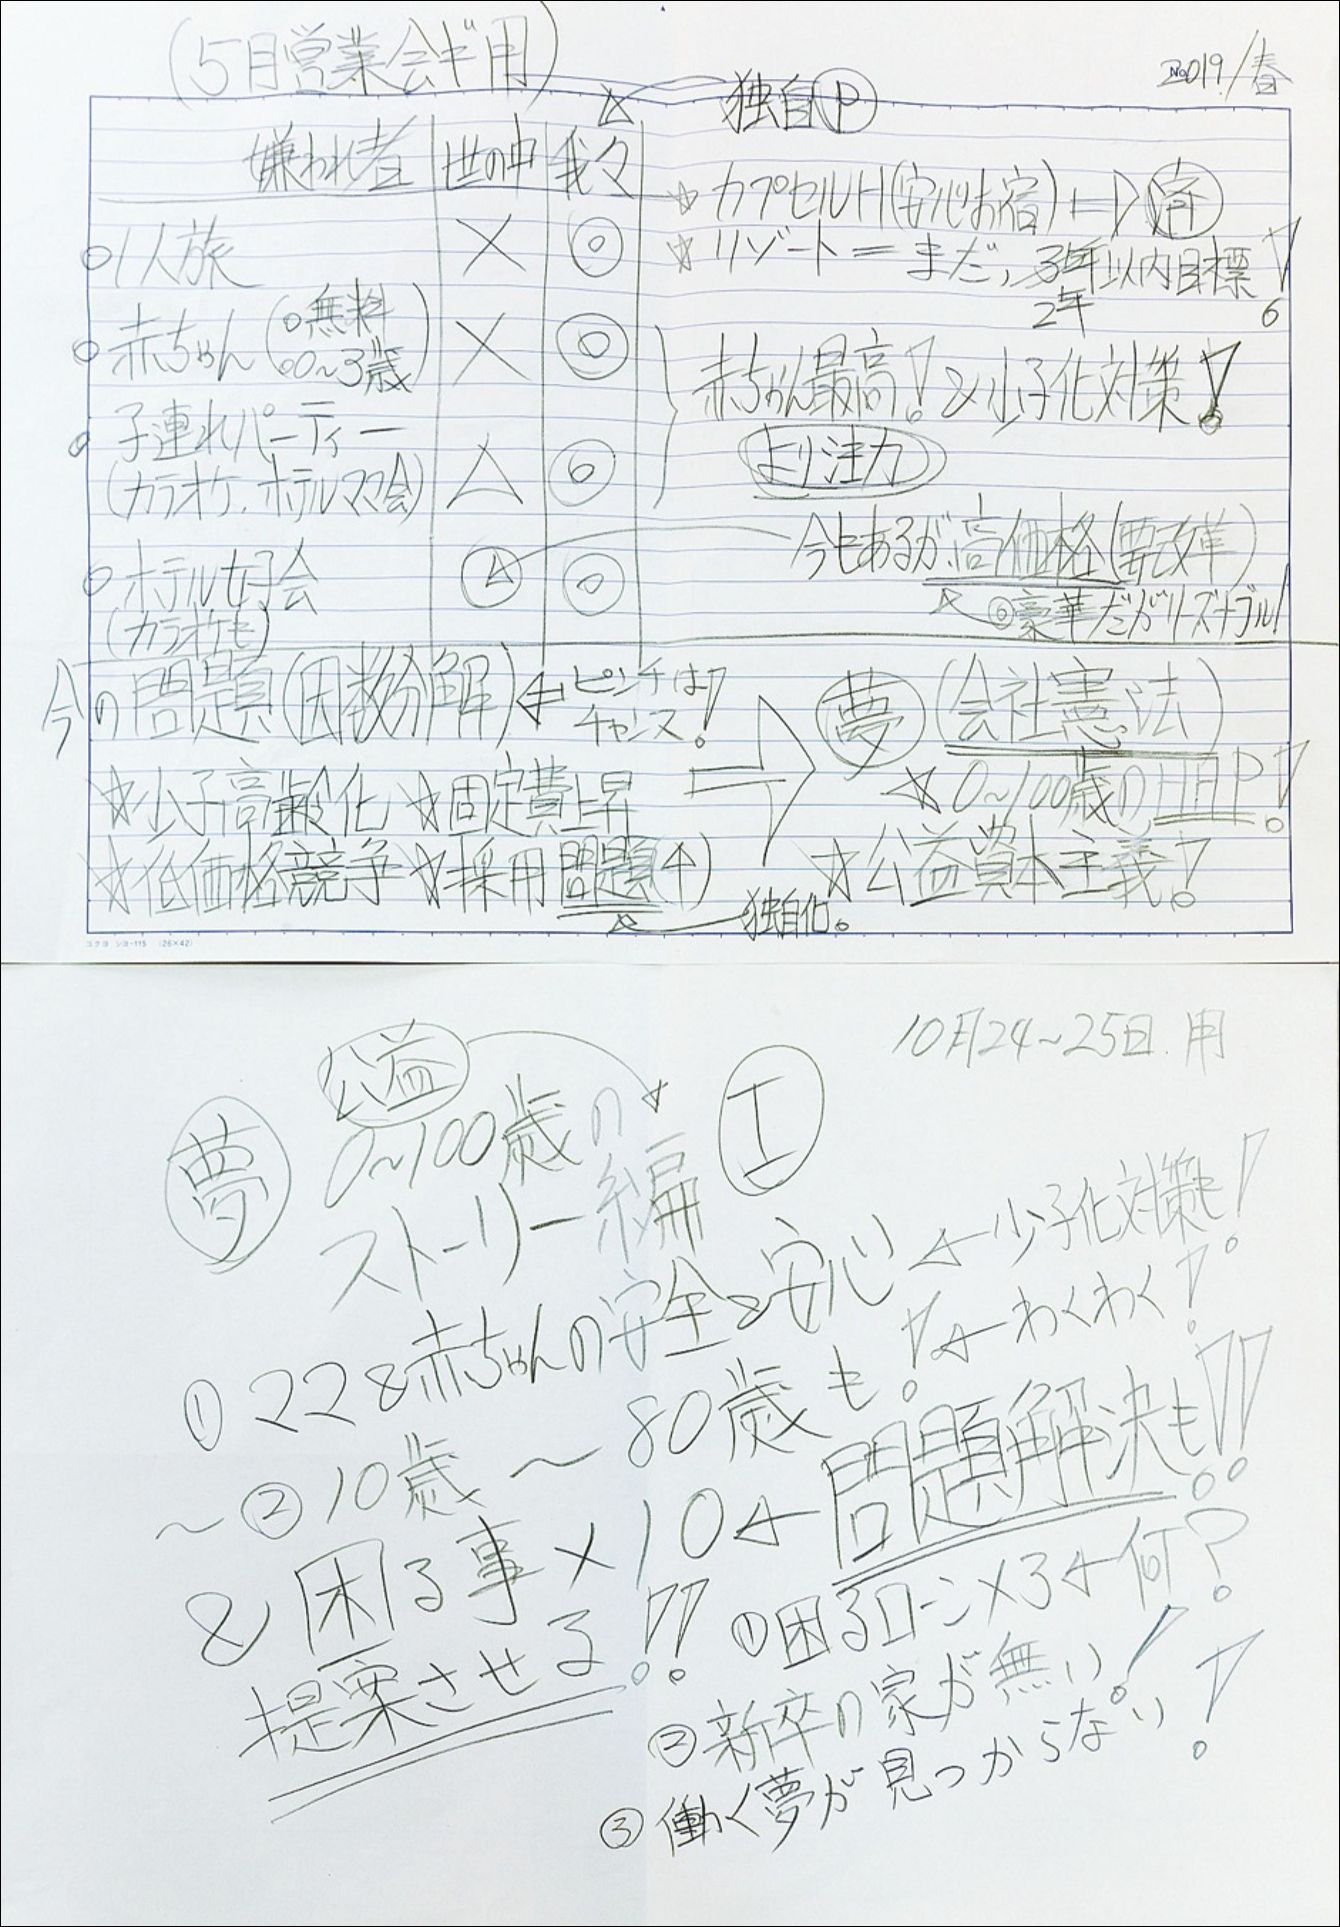 (5月営業会ギ用)
独自P
2019/春
嫌われ者 世の中 我々
○1人旅 × ◎
☆カプセルH(安心お宿)⇨
☆リゾート=まだ, 3年以内目標!
2年
○赤ちゃん(○無料 × ◎
○0~3歳)
赤ちゃん最高!&少子化対策!
○子連れパーティー △ ◎
(カラオケ、ホテルママ会)
より注力
今もあるが高価格(要改革)
○ホテル女子会 △ ◎
(カラオケも)
◎豪華だがリーズナブル!
今の問題(因数分解)⇐ピンチは
チャンス!
夢(会社憲法)
☆少子高齢化 ☆固定費上昇
☆0~100歳のHAP!
☆低価格競争 ☆採用問題(↑)
☆公益資本主義!
独自化。
コクヨ シヨ-115 (26×42)
10月24~25日.用
公益
夢 0~100歳の
ストーリー編 I
①ママ&赤ちゃんの安全&安心←少子化対策も!
~②10歳~80歳も!←わくわく!
&困る事×10←問題解決も!!
提案させる!!
①困るローン×3←何?
②新卒の家が無い!
③働く夢が見つからない!